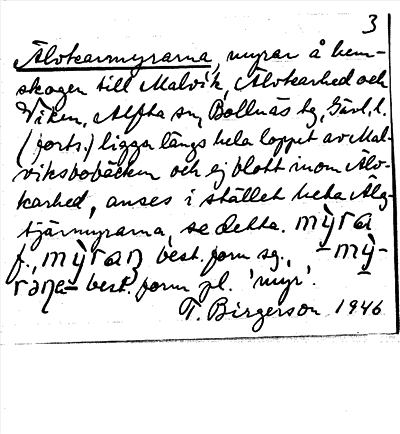 3
Älvkarmyrarna, myrar å hem-
skogen till Malvik, Älvkarhed och
Viken, Alfta sn, Bollnäs tg, Gävl. l.
(forts.) ligga längs hela loppet av Mal-
viksbobäcken och ej blott inom Älv-
karhed, anses i stället heta Älg-
tjärmyrarna, se detta. mỳra
f., mỳraṇ best. form sg., -mỳ-
rəṇa best. form pl. 'myr'.
T. Birgerson 1946